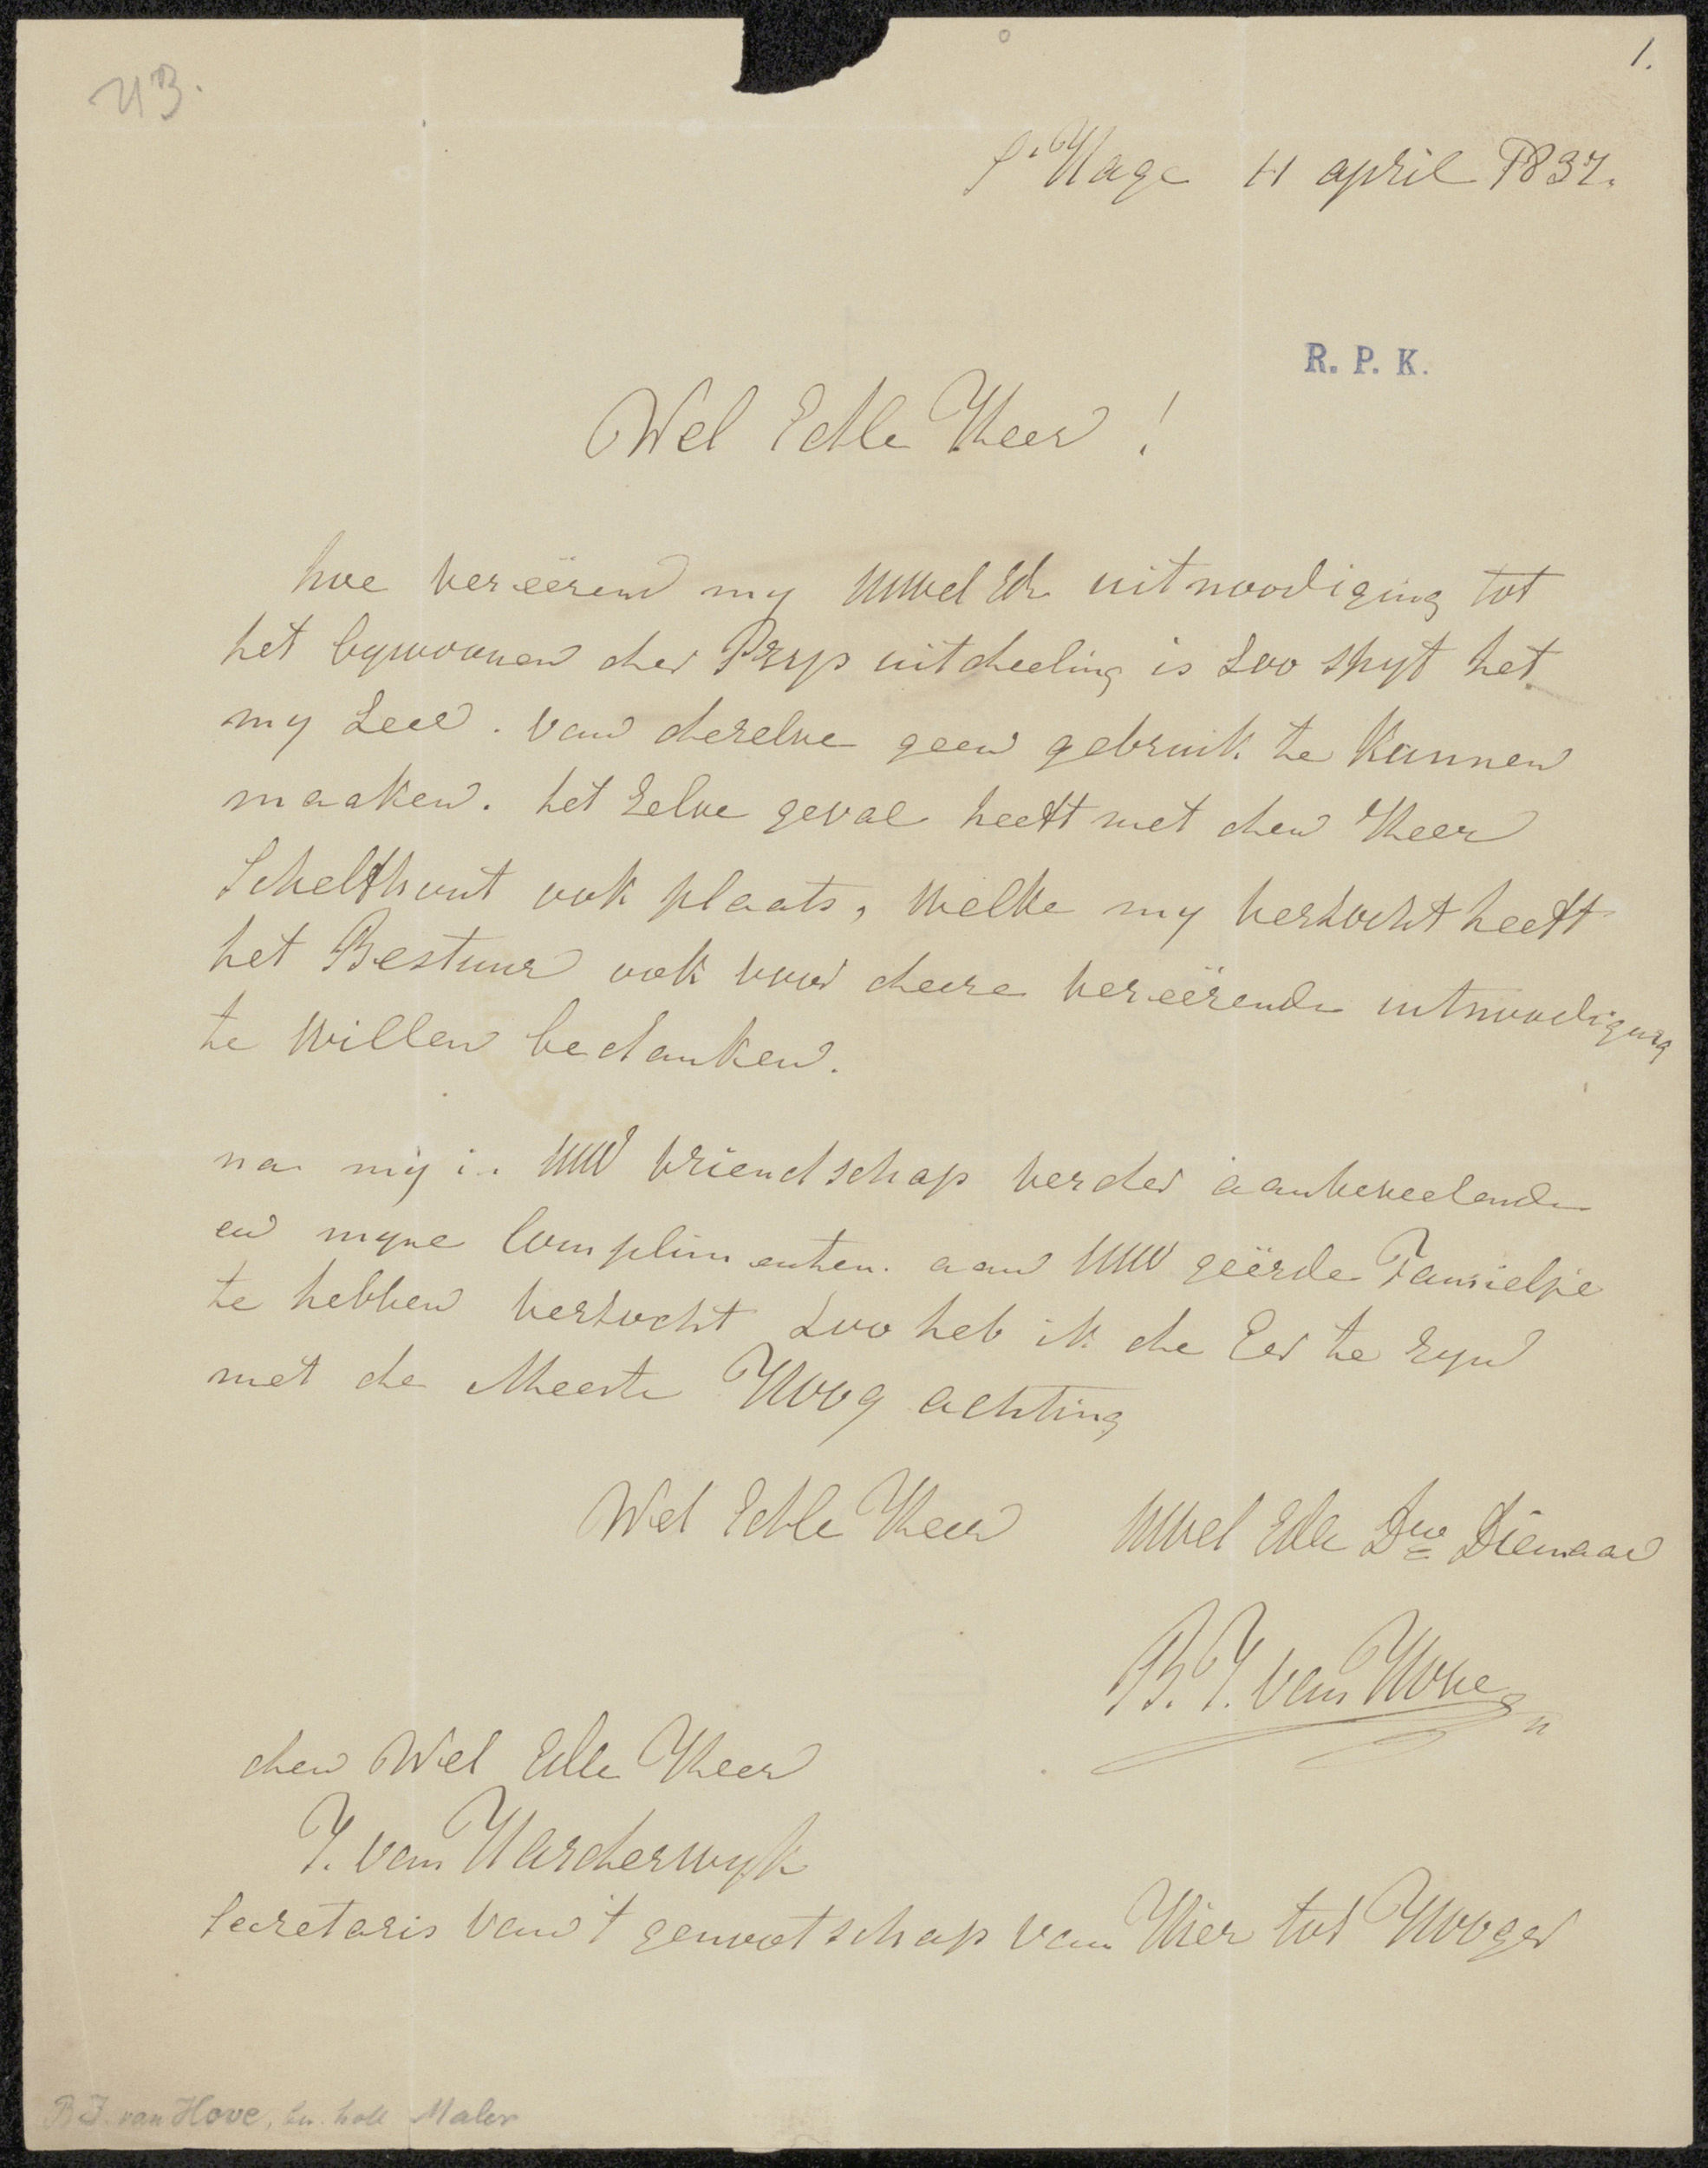 1.
UB.
s'Hage 11 april 1837.
R. P. K.
Wel Edle Heer!
hoe vereërend my UWel Ede uitnoodiging tot
het bywoonen der Prys uitdeeling is zoo spyt het
my zeer. van dezelve geen gebruik te kunnen
maaken. het zelve geval heeft met den Heer
Schelfhout ook plaats, welke my verzocht heeft
het Bestuur ook voor deeze vereërende uitnoodiging
te willen bedanken.
na my in UW vriendschap verder aanbeveelende
en myne Complimenten aan UW geërde Famielje
te hebben verzocht zoo heb ik de Eer te zyn
met de Meeste Hoog achting
Wel Edle Heer UWel Edle Dwe Dienaar
B. J. van Hove
den Wel Edle Heer
J. van Harderwyk
Secretaris van 't genootschap van Hier tot Hooger
B J. van Hove, holl Maler